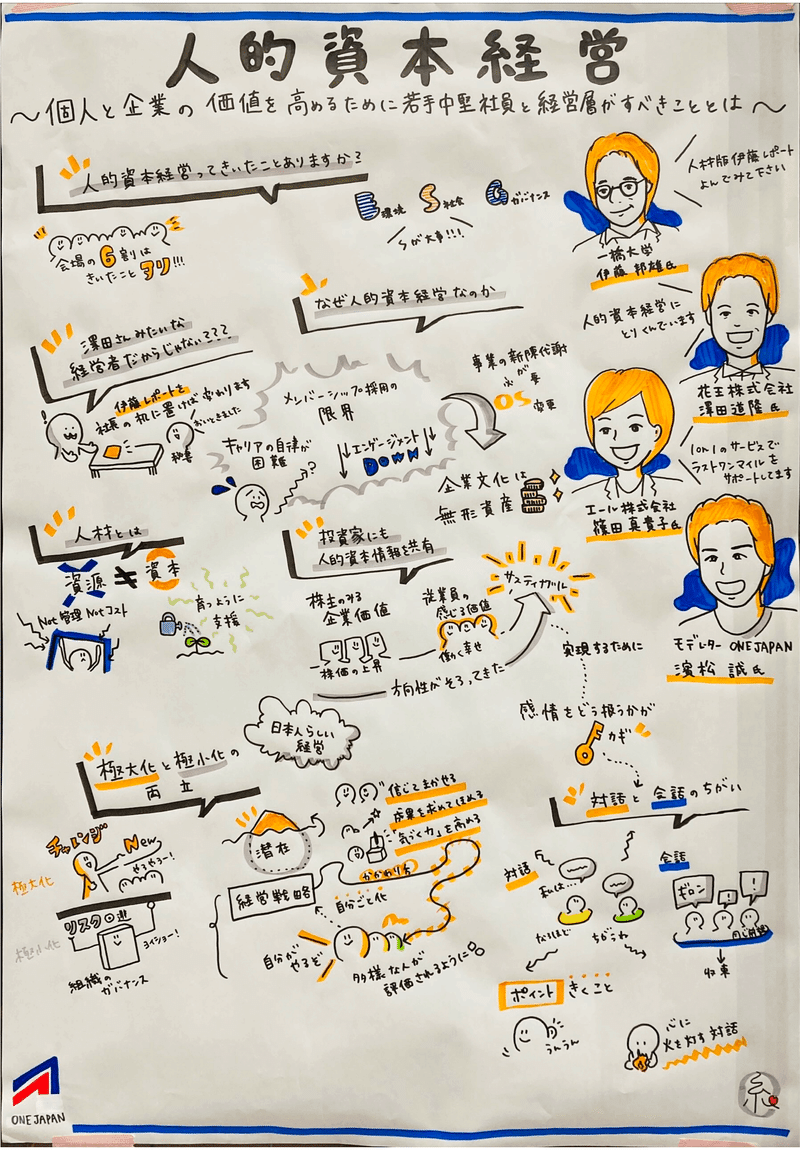 人的資本経営
〜個人と企業の価値を高めるために若手中堅社員と経営層がすべきこととは〜
人的資本経営ってきいたことありますか?
会場の6割は
きいたことアリ!!!
E環境 S社会 Gガバナンス
Sが大事!!!
人材版伊藤レポート
よんでみて下さい
一橋大学
伊藤邦雄氏
人的資本経営に
とりくんでいます
花王株式会社
澤田道隆氏
1on1のサービスで
ラストワンマイルを
サポートしてます
エール株式会社
篠田真貴子氏
モデレーター ONE JAPAN
濱松 誠氏
澤田さんみたいな
経営者だからじゃない???
伊藤レポートを
社長の机に置けば変わります
おいときました
秘書
なぜ人的資本経営なのか
メンバーシップ採用の
限界
キャリアの自律が
困難
エンゲージメント
DOWN
事業の新陳代謝
が必要
OS変更
企業文化は
無形資産
人材とは
資源≠資本
Not管理 Notコスト
育つように
支援
投資家にも
人的資本情報を共有
株主のみる
企業価値
株価の上昇
従業員の
感じる価値
働く幸せ
サスティナブル
方向性がそろってきた
実現するために
感情をどう扱うかが
カギ
日本人らしい
経営
極大化と極小化の
両立
チャレンジ
New
やるぞー!
極大化
リスク回避
極小化
ヨイショー!
組織の
ガバナンス
潜在
信じてまかせる
成果を求めてほめる
「気づく力」を高める
かかわり方
経営戦略
自分ごと化
自分が
やるぞ
多様な人が
評価されるように
対話と会話のちがい
対話
私は…
なるほど
ちがうね
会話
ギロン
同じ前提
収束
ポイント きくこと
うんうん
心に
火を灯す対話
ONE JAPAN